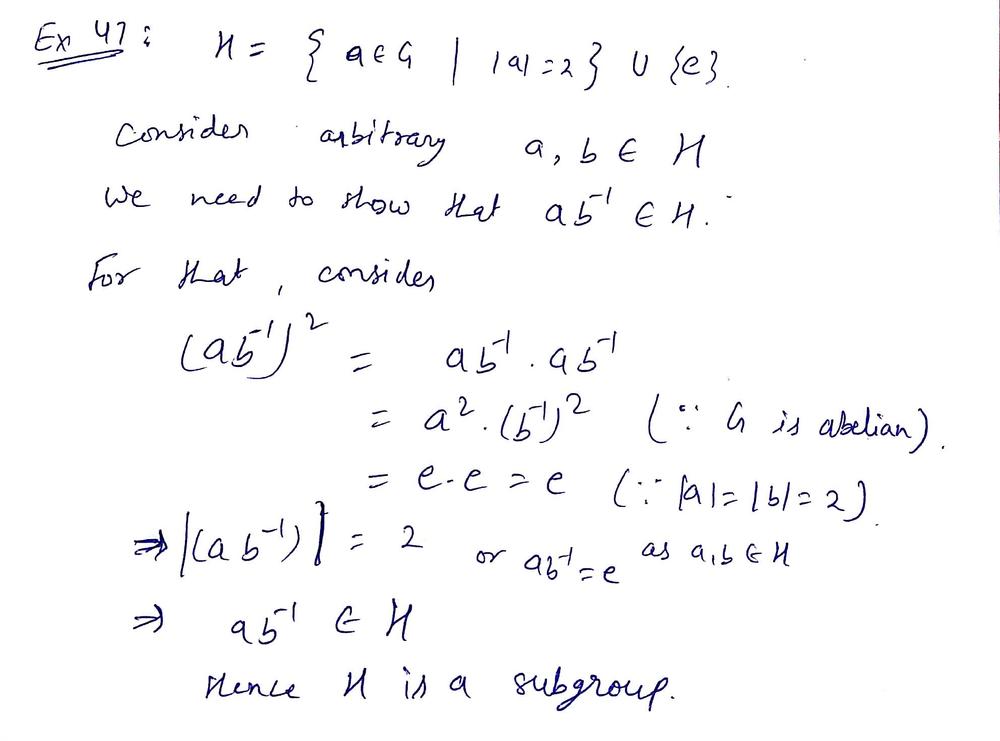 Ex 47: H = { a ∈ G | |a| = 2 } ∪ {e}.
Consider arbitrary a, b ∈ H
We need to show that ab⁻¹ ∈ H.
For that, consider
(ab⁻¹)² = ab⁻¹ . ab⁻¹
= a² . (b⁻¹)² (∵ G is abelian).
= e . e = e (∵ |a| = |b| = 2).
⇒ |(ab⁻¹)| = 2 or ab⁻¹ = e as a, b ∈ H
⇒ ab⁻¹ ∈ H
Hence H is a subgroup.